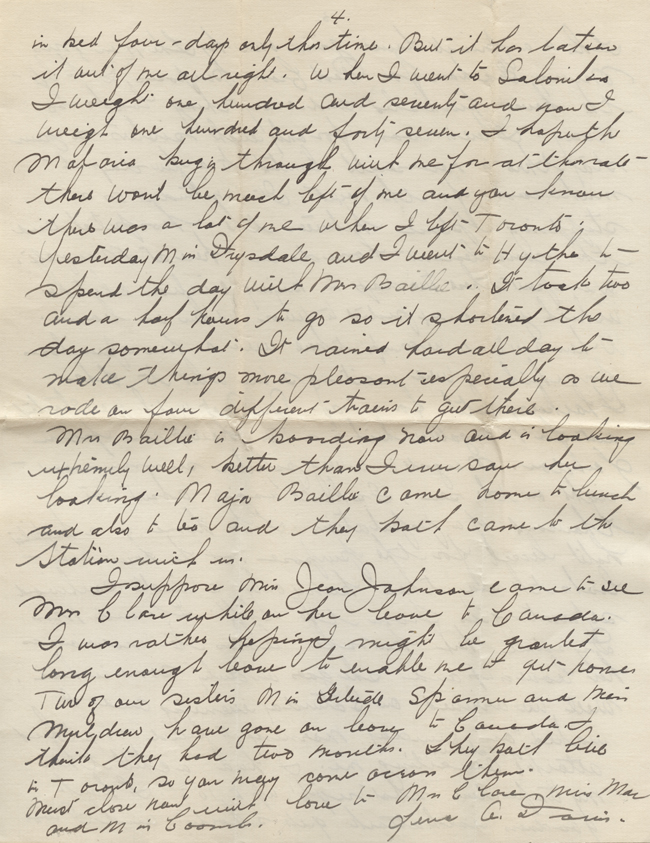 4.
in bed four-days only this time. But it has taken
it out of me all right. When I went to Salonika
I weight one hundred and seventy and now I
weigh one hundred and forty seven. I hope the
Malaria bug is through with me for at this rate
there wont be much left of me and you know
there was a lot of me when I left Toronto.
Yesterday Miss Drysdale and I went to Hythe to
spend the day with Mrs Baillie. It took two
and a half hours to go so it shortened the
day somewhat. It rained hard all day to
make things more pleasant especially as we
rode on four different trains to get there.
Mrs Baillie is boarding now and is looking
extremely well, better than I ever saw her
looking. Major Baillie came home to lunch
and also to tea and they both came to the
Station with us.
I suppose Miss Jean Johnson came to see
Mrs Clare while on her leave to Canada.
I was rather hoping I might be granted
long enough leave to enable me to get home.
Two of our sisters Miss Spanner and Miss
have gone on leave to Canada I
think they had two months. They both live
in Toronto, so you may come across them.
Must close now with love to Mrs Clare, Miss Mac
and Miss Coomb.
A. Davis.